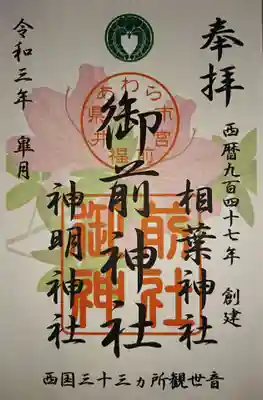 奉拝
西暦九百四十七年 創建
相葉神社
御前神社
神明神社
令和三年 皐月
福井県あわら市宮前
御前
神社
西国三十三カ所観世音